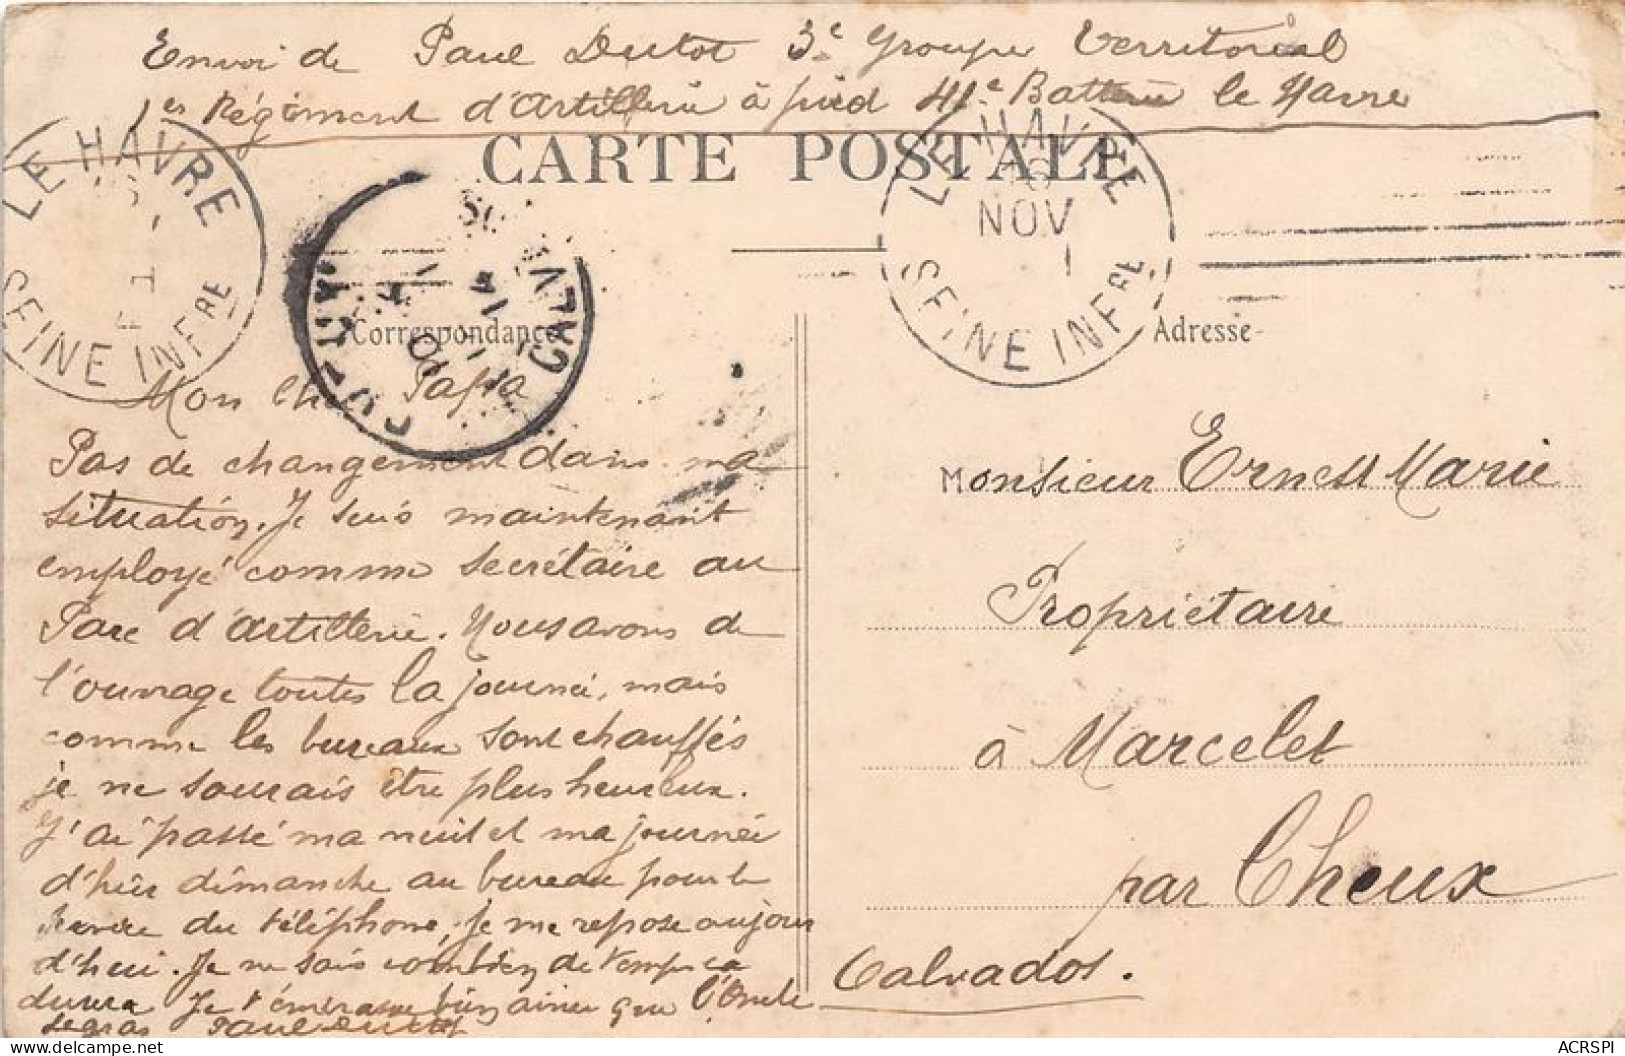 Envoi de Paul Dutot 3e Groupe Territorial
1er Régiment d'Artillerie à pied 41e Batterie le Havre
CARTE POSTALE
LE HAVRE
SEINE INFRE
LE HAVRE
NOV
SEINE INFRE
Correspondance
Adresse
Mon Cher Papa
Pas de changement dans ma
situation. Je suis maintenant
employé comme secrétaire au
Parc d'artillerie. Nous avons de
l'ouvrage toutes la journée, mais
comme les bureaux sont chauffés
je ne saurais être plus heureux.
J'ai passé ma nuit et ma journée
d'hier dimanche au bureau pour le
service du téléphone, je me repose aujour
d'hui. Je ne sais combien de temps ca
durera Je t'embrasse bien ainsi que l'Oncle
Legras Paul Dutot
Monsieur Ernest Marie
Propriétaire
à Marcelet
par Cheux
Calvados.
ACRSPI